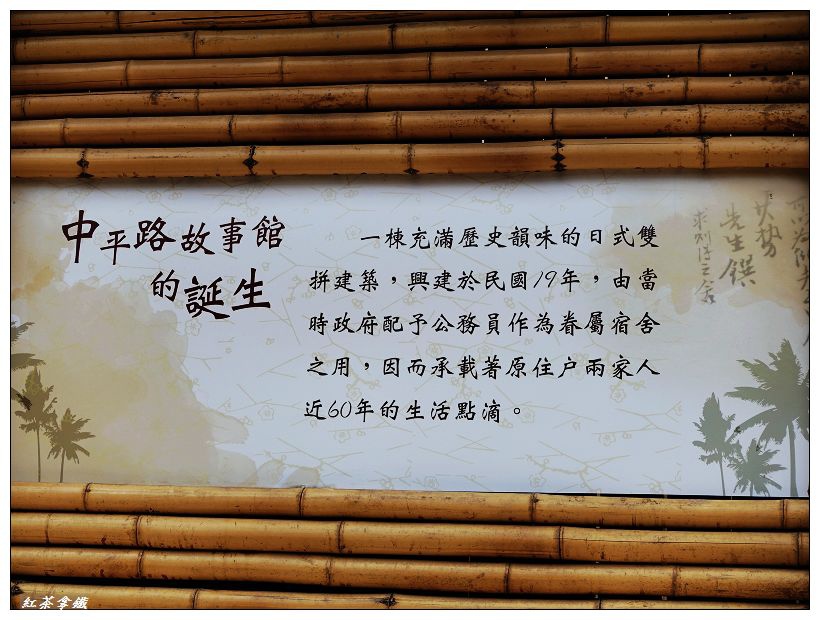 中平路故事館
的誕生
一棟充滿歷史韻味的日式雙
拼建築，興建於民國19年，由當
時政府配予公務員作為眷屬宿舍
之用，因而承載著原住戶兩家人
近60年的生活點滴。
先生饌
紅茶拿鐵